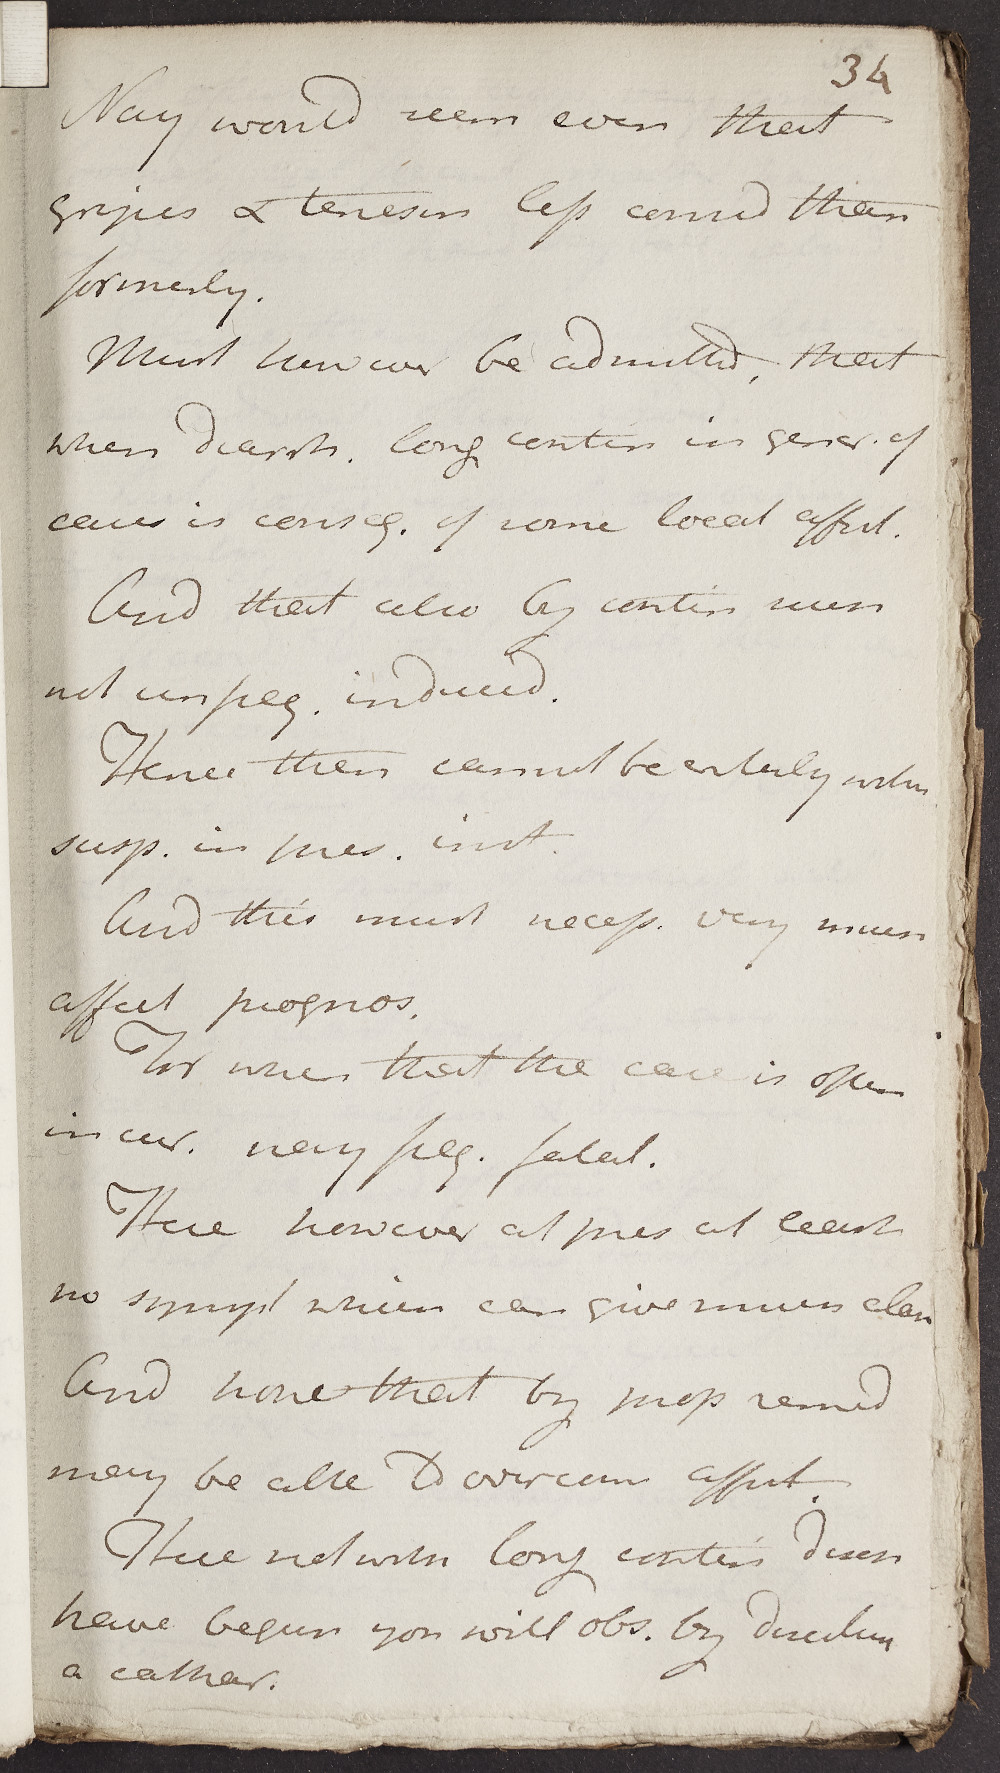 34
Nay would seem even that
gripes & tenesm less consid than
formerly.
Must however be admitted, that
when diarrh. long contin in gener. of
cases is conseq. of some local affect.
And that also by contin
not unfreq. induced.
Hence then cannot be entirely witht
susp. in pres. inst.
And this must necess. very much
affect prognos.
For when that the case is often
incur. nay freq. fatal.
Here however at pres at least
no sympt which can give much alarm
And hope that by prop remed
may be able to overcom affect.
Here notwith long contin
have begun you will obs. by
a cathar.